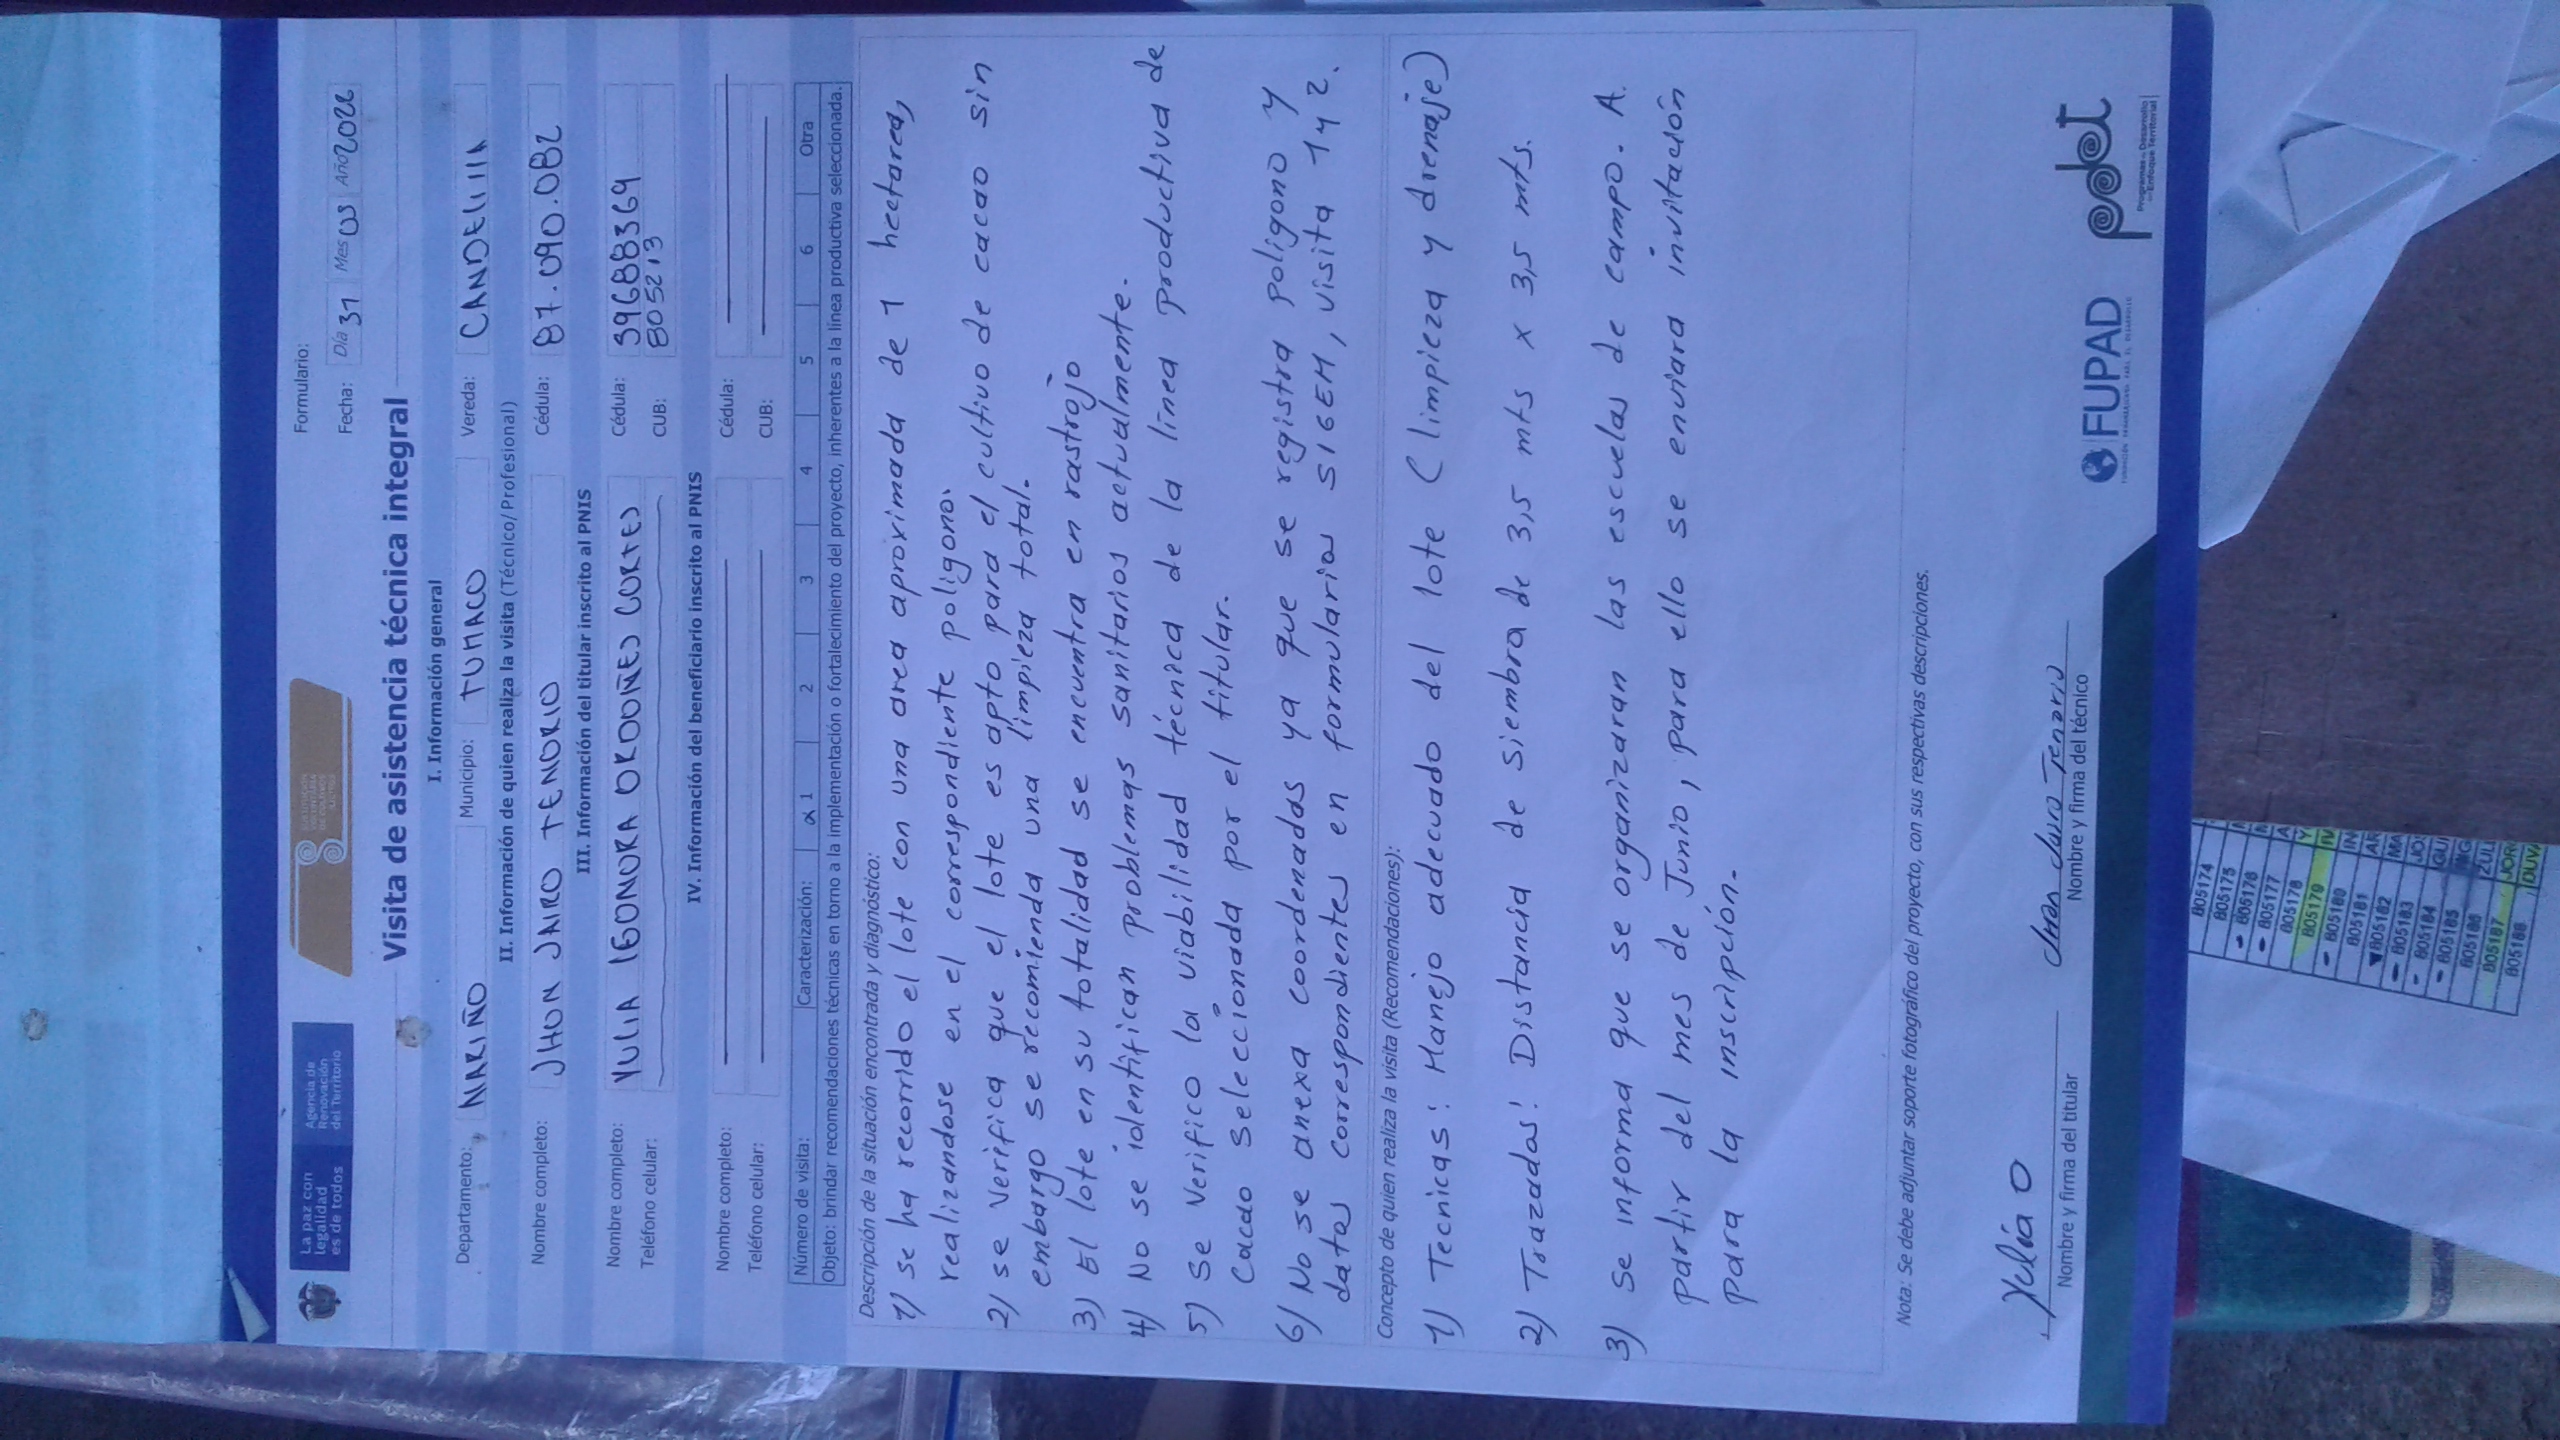 La paz con
legalidad
es de todos
Agencia de
Renovación
del Territorio
Formulario:
Fecha: Día 31 Mes 03 Año 2022
Visita de asistencia técnica integral
I. Información general
Departamento: NARIÑO Municipio: TUMACO Vereda: CANDELILLA
II. Información de quien realiza la visita (Técnico/Profesional)
Nombre completo: JHON JAIRO TENORIO Cédula: 87.090.082
III. Información del titular inscrito al PNIS
Nombre completo: YULIA LEONORA ORDOÑES CORTES Cédula: 396888369
Teléfono celular: CUB: 805213
IV. Información del beneficiario inscrito al PNIS
Nombre completo: Cédula:
Teléfono celular: CUB:
Número de visita: Caracterización: x 1 2 3 4 5 6 Otra
Objeto: brindar recomendaciones técnicas en torno a la implementación o fortalecimiento del proyecto, inherentes a la línea productiva seleccionada.
Descripción de la situación encontrada y diagnóstico:
1) se ha recorrido el lote con una area aproximada de 1 hectarea,
realizandose en el correspondiente poligono.
2) se verifica que el lote es apto para el cultivo de cacao sin
embargo se recomienda una limpieza total.
3) El lote en su totalidad se encuentra en rastrojo
4) No se identifican problemas sanitarios actualmente.
5) Se verifico la viabilidad técnica de la línea productiva de
Cacao Seleccionada por el titular.
6) No se anexa coordenadas ya que se registra poligono y
datos correspondientes en formularios SIGEM, visita 1 y 2.
Concepto de quien realiza la visita (Recomendaciones):
1) Tecnicas: Manejo adecuado del lote (limpieza y drenaje)
2) Trazados: Distancia de siembra de 3,5 mts x 3,5 mts.
3) Se informa que se organizaran las escuelas de campo. A
partir del mes de Junio, para ello se enviara invitación
para la inscripción.
Nota: Se debe adjuntar soporte fotográfico del proyecto, con sus respectivas descripciones.
Yulia O
Nombre y firma del titular
Jhon Jairo Tenorio
Nombre y firma del técnico
FUPAD
pdet
Programas de Desarrollo
con Enfoque Territorial
805174
805175
805176
805177
805178
805179
805180
805181
805182
805183
805184
805185
805186
805187
805188